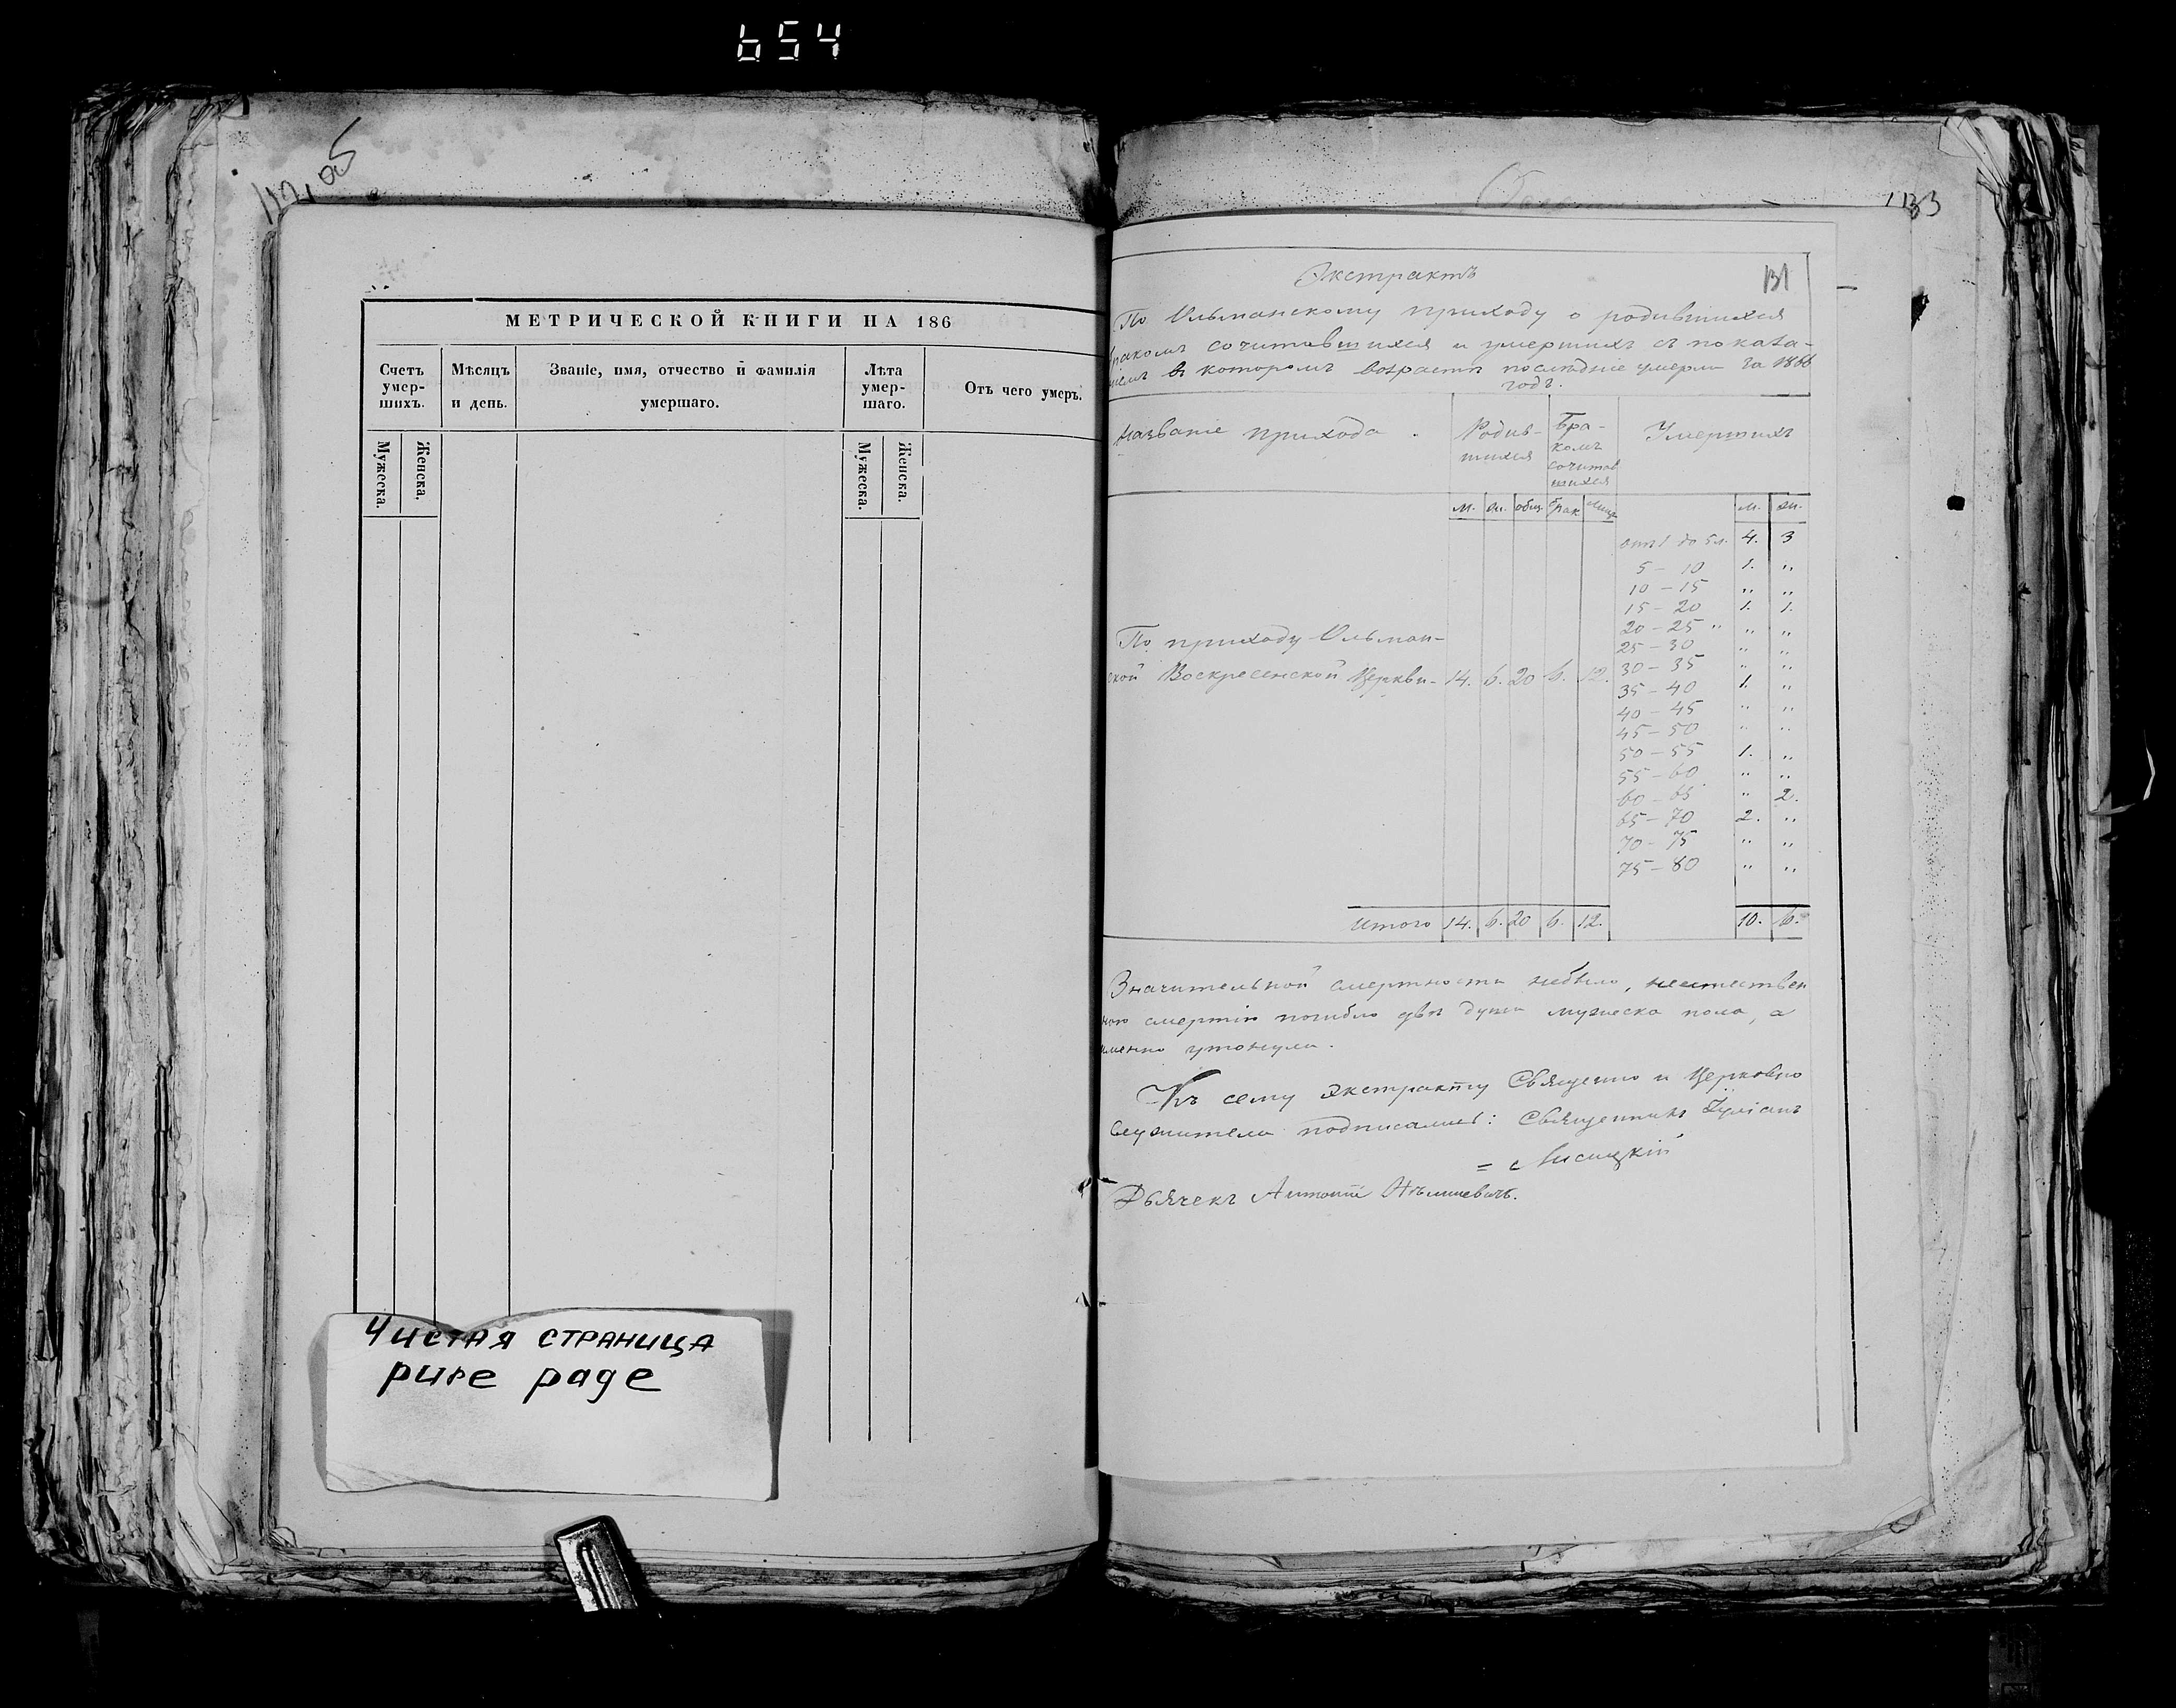 654
132, об
МЕТРИЧЕСКОЙ КНИГИ НА 186
Счетъ умер-шихъ.
Мѣсяцъ и день.
Званіе, имя, отчество и фамилія умершаго.
Лѣта умер-шаго.
Отъ чего умеръ.
Мужеска.
Женска.
Мужеска.
Женска.
Чистая страница
pure page
133
131
Экстрактъ
По Ольманскому приходу о родившихся
бракомъ сочитавшихся и умершихъ съ показа-
ніемъ въ которомъ возрастѣ послѣдніе умерли за 1866
годъ.
Названіе прихода.
Родив-
шихся
Бра-
комъ
сочитав
шихся
Умершихъ
м. ж. общ. брак. лица м. ж.
отъ 1 до 5 л. 4. 3
5 – 10 1. „
10 – 15 „ „
15 – 20 1. 1.
20 – 25 „ „ „
25 – 30 „ „
30 – 35 „ „
35 – 40 1. „
40 – 45 „ „
45 – 50 „ „
50 – 55 1. „
55 – 60 „ „
60 – 65 „ 2.
65 – 70 2. „
70 – 75 „ „
75 – 80 „ „
По приходу Ольман-
ской Воскресенской Церкви – 14. 6. 20 6. 12.
Итого 14. 6. 20 6. 12. 10. 6.
Значительной смертности небыло, неестествен
ною смертію погибло двѣ души мужеска пола, а
именно утонули.
Къ сему экстракту Священно и Церковно
служители подписались: Священникъ Іуліанъ
= Лисицкій
Дьячекъ Антоній